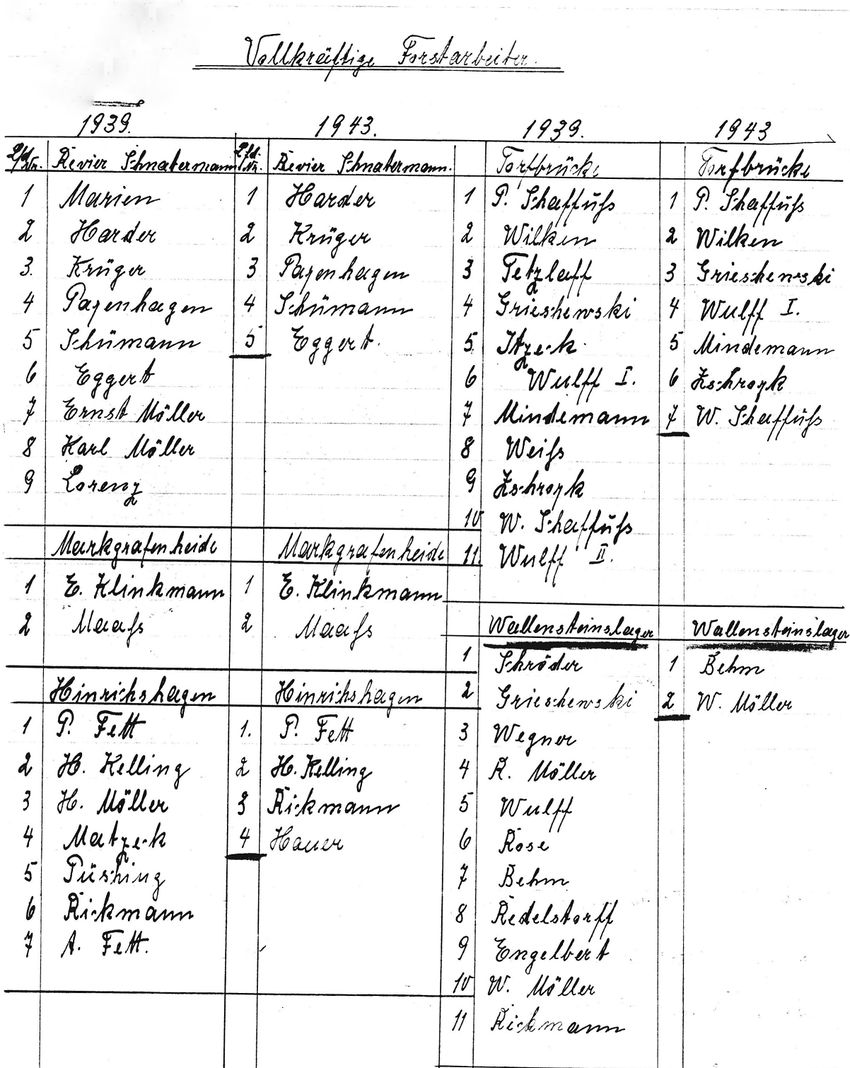 Vollkräftige Forstarbeiter.
1939. 1943. 1939. 1943
Lfd. Nr. Revier Schnatermann Lfd. Nr. Revier Schnatermann. Torfbrücke Torfbrücke
1 Marien 1 Harder 1 P. Schaffuß 1 P. Schaffuß
2 Harder 2 Krüger 2 Wilken 2 Wilken
3. Krüger 3 Papenhagen 3 Tetzlaff 3 Grieschewski
4 Papenhagen 4 Schümann 4 Grieschewski 4 Wulff I.
5 Schümann 5 Eggert. 5. Itzeck 5 Mindemann
6 Eggert 6 Wulff I. 6 Zschrozk
7 Ernst Möller 7 Mindemann 7 W. Schaffuß
8 Karl Möller 8 Weiß
9 Lorenz 9 Zschrozk
10 W. Schaffuß
Markgrafenheide Markgrafenheide 11. Wulff II.
1 E. Klinkmann 1 E. Klinkmann
2 Maaß 2 Maaß Wallensteinslager Wallensteinslager
1 Schröder 1 Behm
Hinrichshagen Hinrichshagen 2 Grieschewski 2 W. Möller
1 P. Fett 1. P. Fett 3 Wegner
2 H. Kelling 2 H. Kelling 4 R. Möller
3 H. Möller 3 Rickmann 5 Wulff
4 Matzeck 4 Hauer 6 Rose
5 Püsching 7 Behm
6 Rickmann 8 Redelstorff
7 A. Fett. 9 Engelbert
10 W. Möller
11 Rickmann